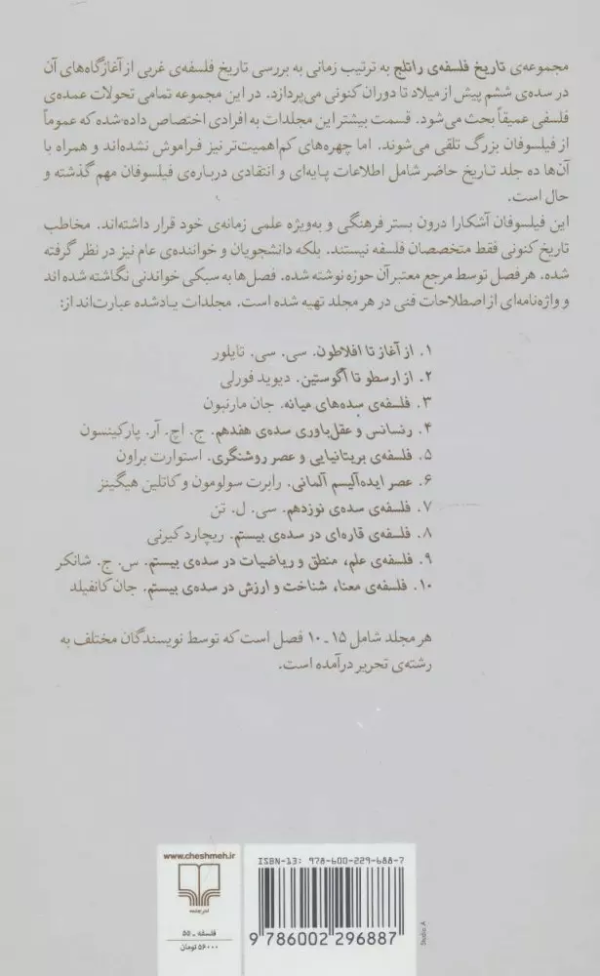 مجموعه‌ی تاریخ فلسفه‌ی راتلج به ترتیب زمانی به بررسی تاریخ فلسفه‌ی غربی از آغازگاه‌های آن
در سده‌ی ششم پیش از میلاد تا دوران کنونی می‌پردازد. در این مجموعه تمامی تحولات عمده‌ی
فلسفی عمیقاً بحث می‌شود. قسمت بیشتر این مجلدات به افرادی اختصاص داده شده که عموماً
از فیلسوفان بزرگ تلقی می‌شوند. اما چهره‌های کم‌اهمیت‌تر نیز فراموش نشده‌اند و همراه با
آن‌ها ده جلد تاریخ حاضر شامل اطلاعات پایه‌ای و انتقادی درباره‌ی فیلسوفان مهم گذشته و
حال است.
این فیلسوفان آشکارا درون بستر فرهنگی و به‌ویژه علمی زمانه‌ی خود قرار داشته‌اند. مخاطب
تاریخ کنونی فقط متخصصان فلسفه نیستند. بلکه دانشجویان و خواننده‌ی عام نیز در نظر گرفته
شده. هر فصل توسط مرجع معتبر آن حوزه نوشته شده. فصل‌ها به سبکی خواندنی نگاشته شده اند
و واژه‌نامه‌ای از اصطلاحات فنی در هر مجلد تهیه شده است. مجلدات یادشده عبارت‌اند از:
۱. از آغاز تا افلاطون. سی. سی. تایلور
۲. از ارسطو تا آگوستین. دیوید فورلی
۳. فلسفه‌ی سده‌های میانه. جان مارنبون
۴. رنسانس و عقل‌باوری سده‌ی هفدهم. ج. اچ. آر. پارکینسون
۵. فلسفه‌ی بریتانیایی و عصر روشنگری. استوارت براون
۶. عصر ایده‌آلیسم آلمانی. رابرت سولومون و کاتلین هیگینز
۷. فلسفه‌ی سده‌ی نوزدهم. سی. ل. تن
۸. فلسفه‌ی قاره‌ای در سده‌ی بیستم. ریچارد کیرنی
۹. فلسفه‌ی علم، منطق و ریاضیات در سده‌ی بیستم. س. ج. شانکر
۱۰. فلسفه‌ی معنا، شناخت و ارزش در سده‌ی بیستم. جان کانفیلد
هر مجلد شامل ۱۵ ـ ۱۰ فصل است که توسط نویسندگان مختلف به
رشته‌ی تحریر درآمده است.
www.cheshmeh.ir
نشر چشمه
فلسفه ـ ۵۵
۵۶۰۰۰ تومان
ISBN-13: 978-600-229-688-7
9 786002 296887
Studio A